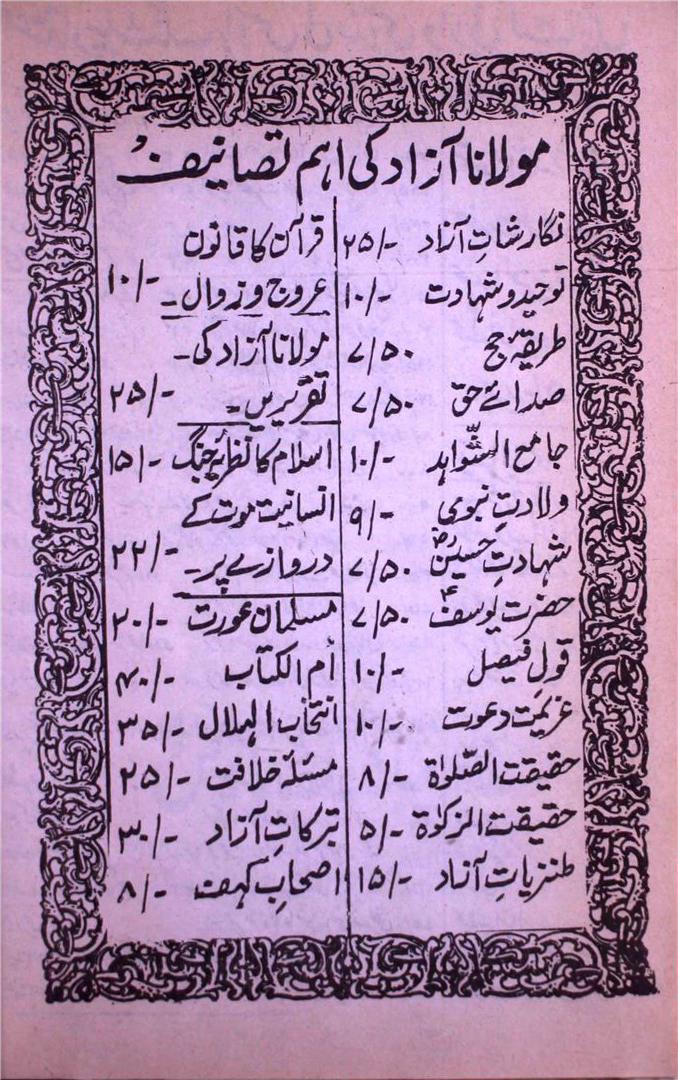 مولانا آزاد کی اہم تصانیف
نگارشاتِ آزاد ۲۵/-
توحید و شہادت ۱۰/-
طریقۂ حج ۷/۵۰
صدائے حق ۷/۵۰
جامع الشّواہد ۱۰/-
ولادتِ نبوی ۹/-
شہادتِ حسینؓ ۷/۵۰
حضرت یوسفؑ ۷/۵۰
قولِ فیصل ۱۰/-
عزیمت دعوت ۱۰/-
حقیقت الصّلوٰۃ ۸/-
حقیقت الزکوٰۃ ۵/-
طنزیاتِ آزاد ۱۵/-
قرآن کا قانون
عروج و زوال۔ ۱۰/-
مولانا آزاد کی۔
تقریریں۔ ۲۵/-
اسلام کا نظریۂ جنگ ۱۵/-
انسانیت موت کے
دروازے پر۔ ۲۲/-
مسلمان عورت ۲۰/-
ام الکتاب ۴۰/-
انتخاب الہلال ۳۵/-
مسئلہ خلافت ۲۵/-
تبرکاتِ آزاد ۳۰/-
اصحابِ کہف ۸/-